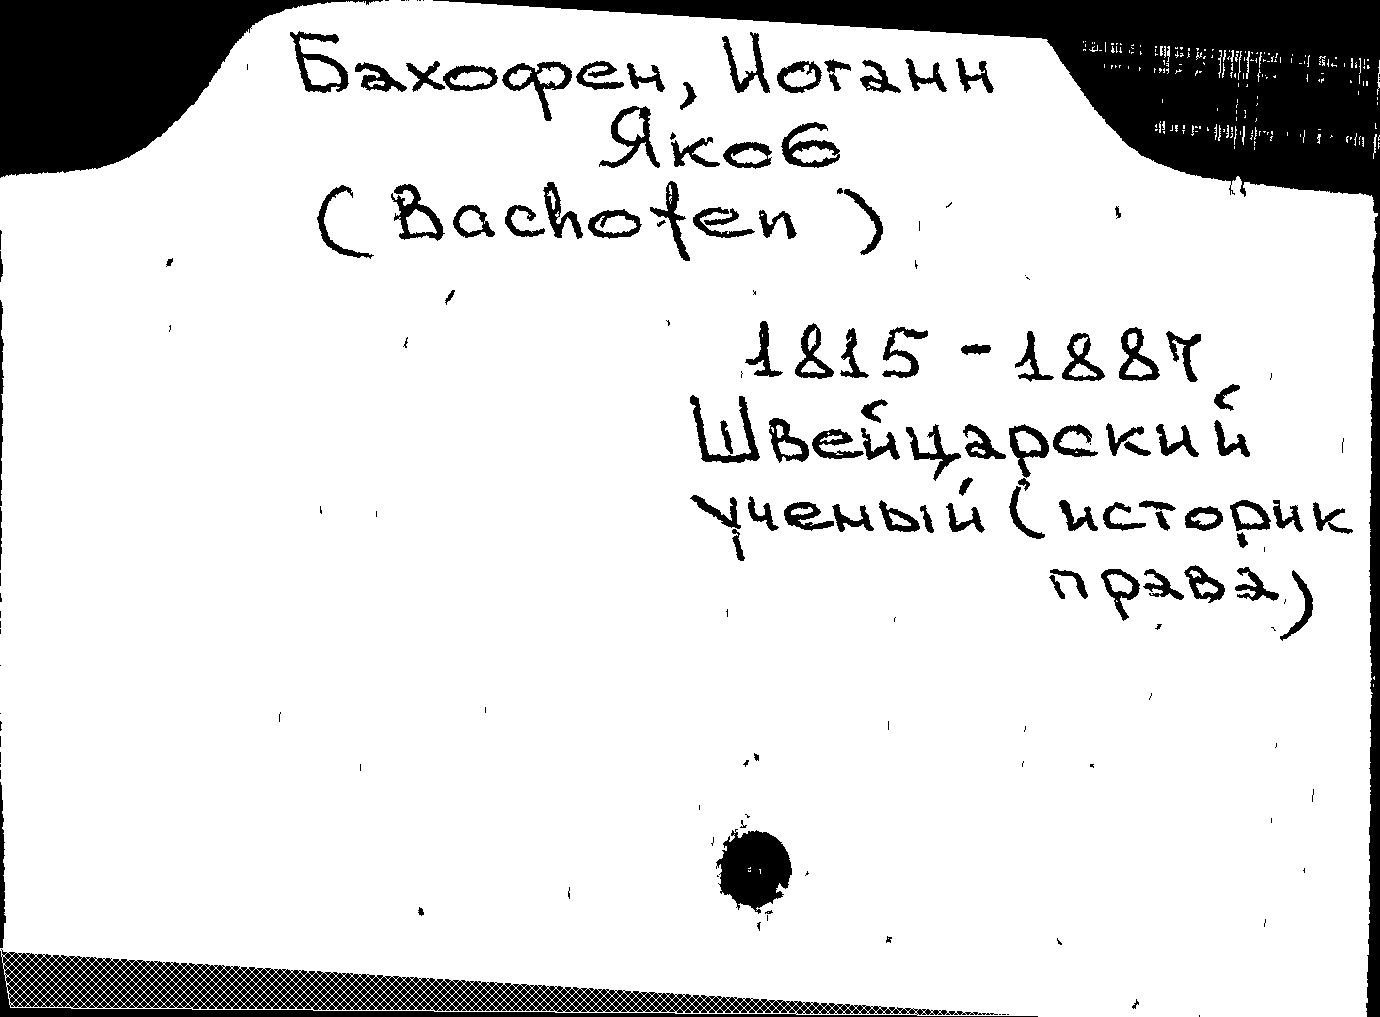 Бахофен, Иоганн
Якоб
(Bachofen)
1815 - 1887
Швейцарский
ученый (историк
права)